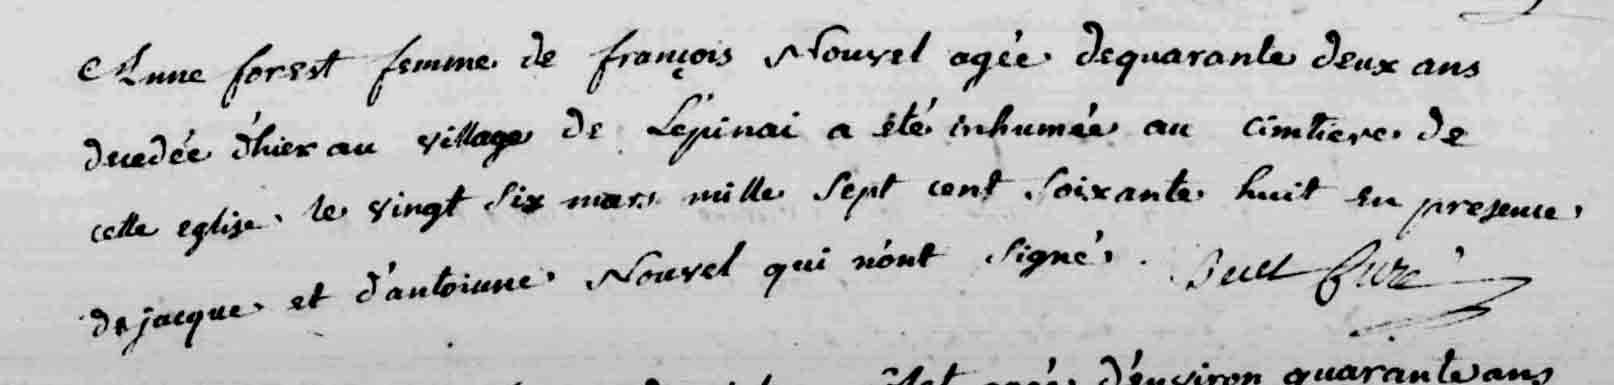 Anne forest femme de françois Nouvel agée dequarante deux ans
decedée d'hier au village de Lépinai a été inhumée au cimtiere de
cette eglise le vingt six mars mille sept cent soixante huit en presence
de jacque et d'antoinne Nouvel qui n'ont signé. Curé
d'environ quarante ans